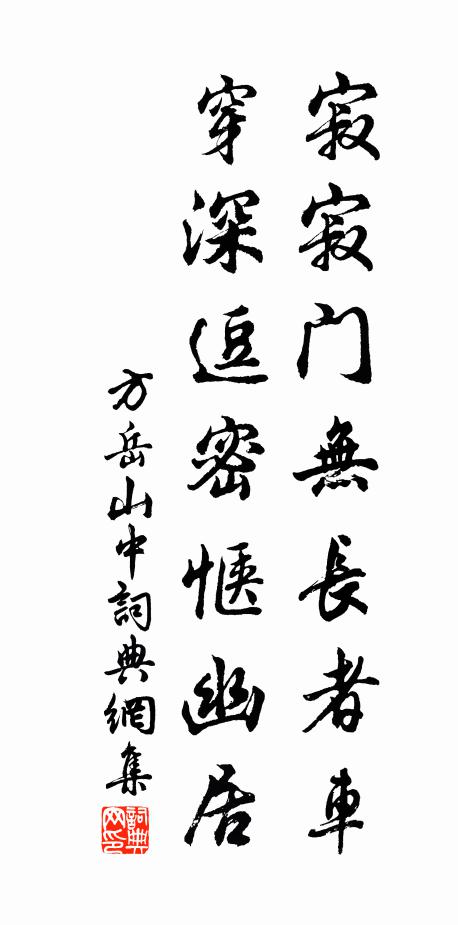 寂寂門無長者車
穿深逗密愜幽居
方岳山中詞典網集
詞典网印